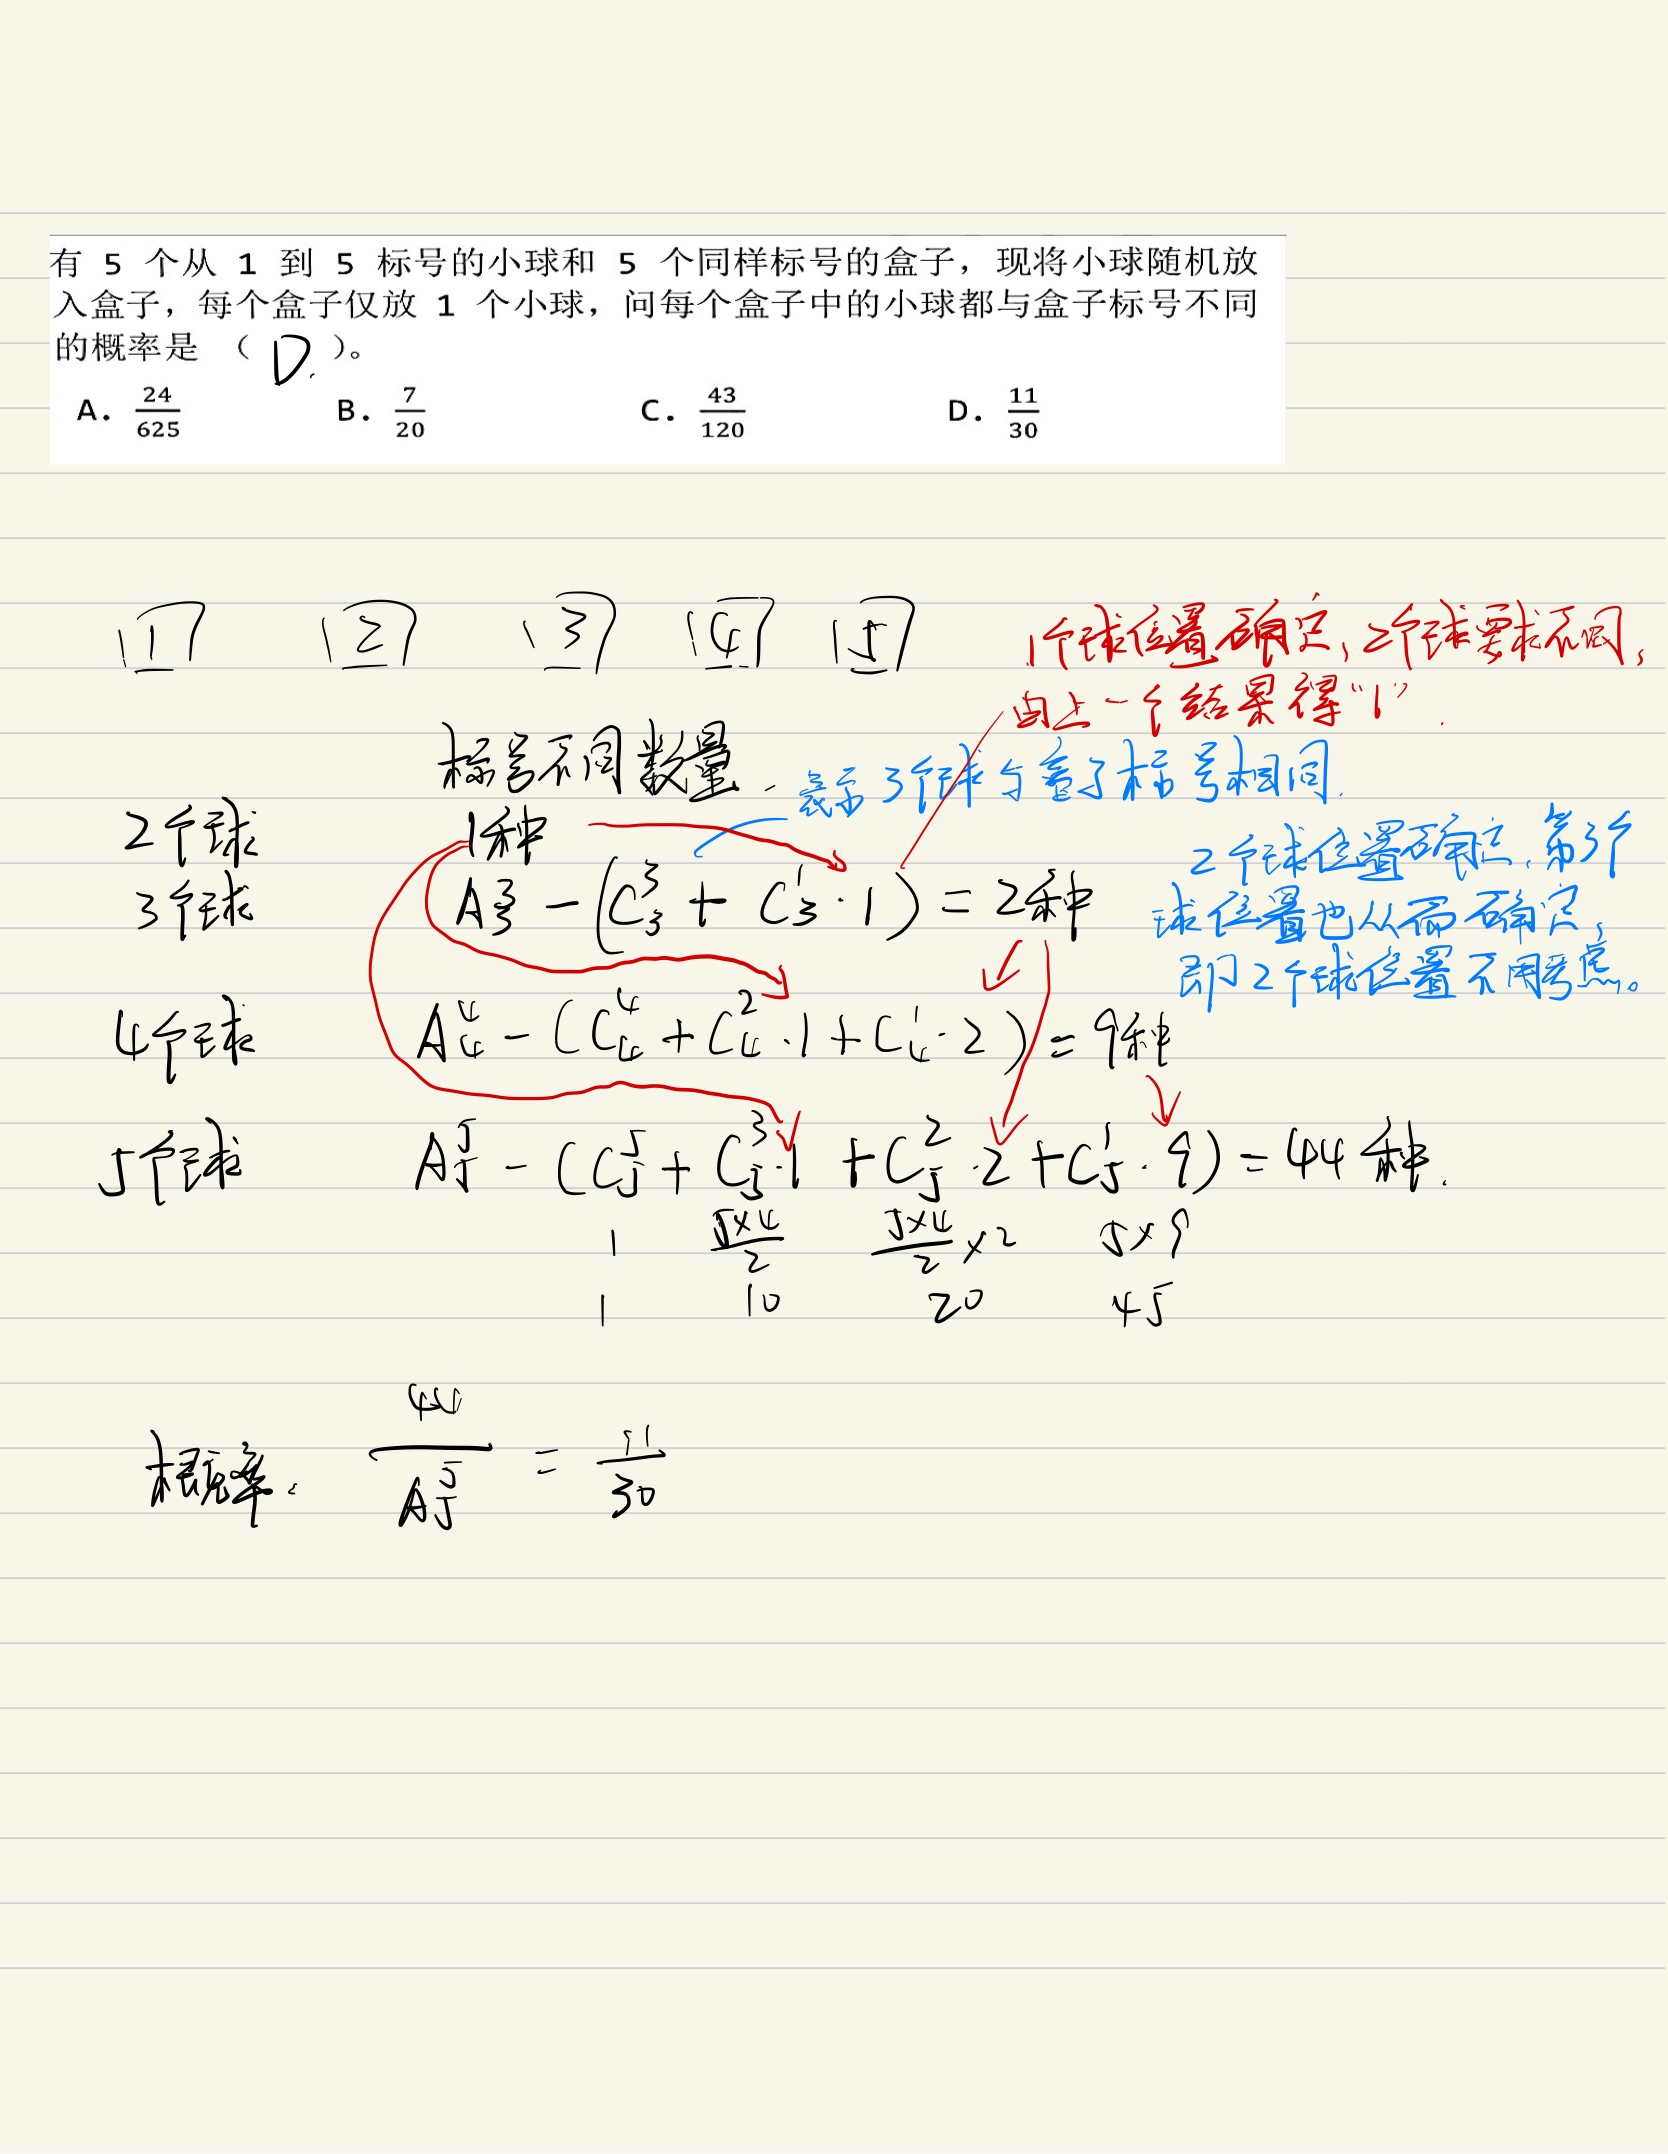 有 5 个从 1 到 5 标号的小球和 5 个同样标号的盒子，现将小球随机放
入盒子，每个盒子仅放 1 个小球，问每个盒子中的小球都与盒子标号不同
的概率是 （ D. ）。
A. 24/625 B. 7/20 C. 43/120 D. 11/30
1 2 3 4 5
1个球位置确定，2个球要求不同，
由上一个结果得“1”.
标号不同数量
表示3个球与盒子标号相同.
2个球 1种
2个球位置确定，第3个
球位置也从而确定，
即2个球位置不用考虑。
3个球 A₃³ - (C₃³ + C₃¹·1) = 2种
4个球 A₄⁴ - (C₄⁴ + C₄²·1 + C₄¹·2) = 9种
5个球 A₅⁵ - (C₅⁵ + C₅³·1 + C₅²·2 + C₅¹·9) = 44种.
1 5×4/2 5×4/2 ×2 5×9
1 10 20 45
概率: 44/A₅⁵ = 11/30